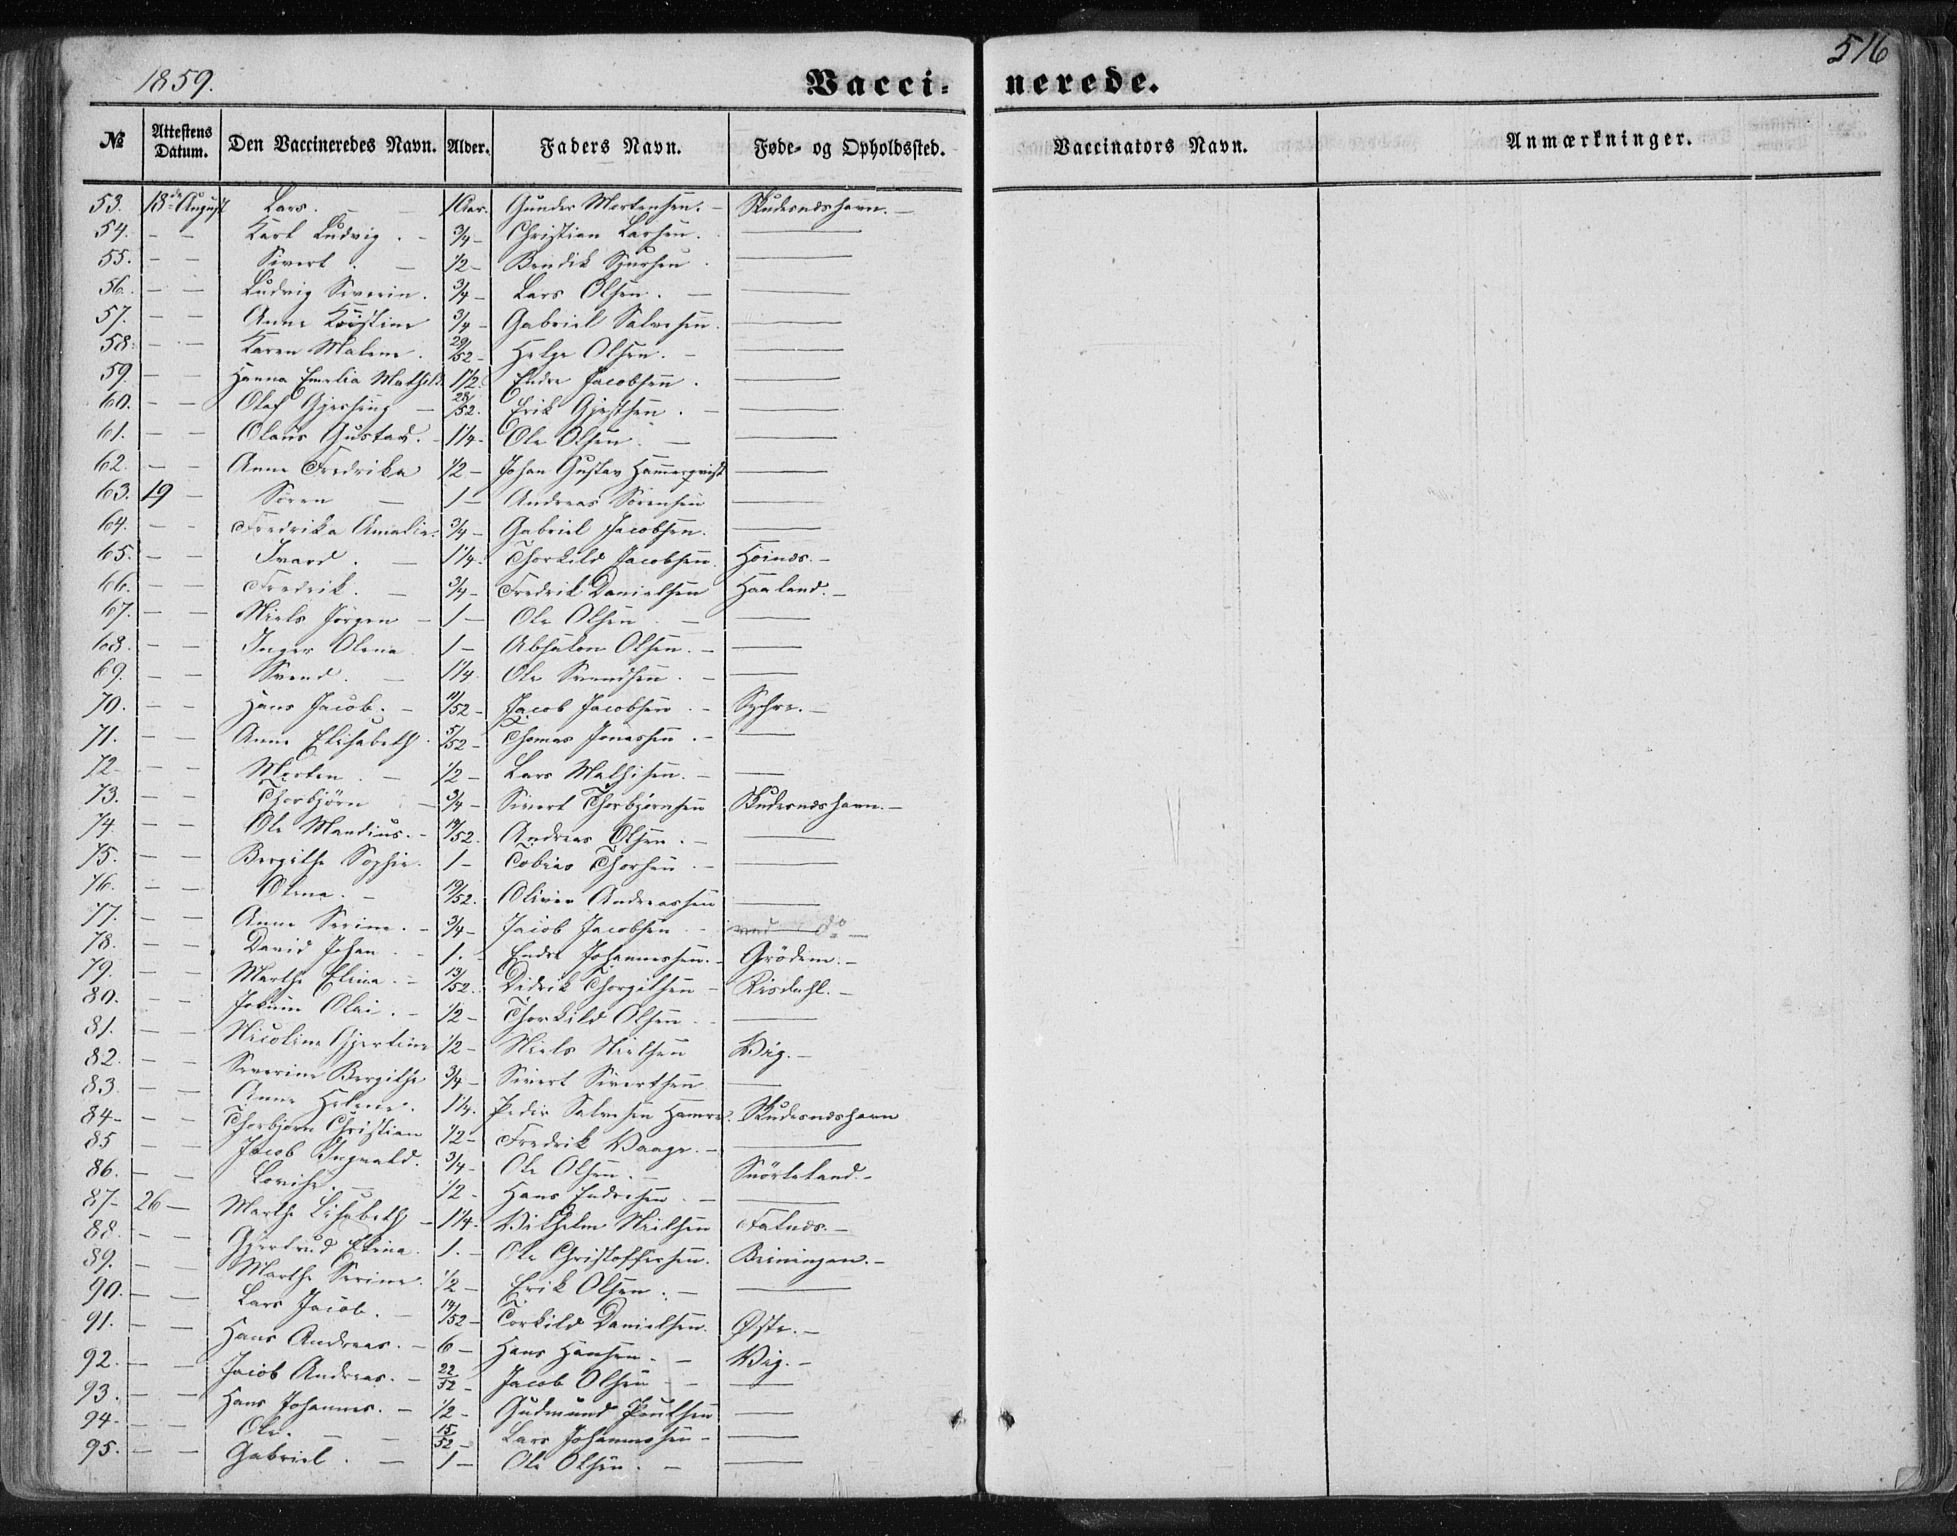 1859.
516
Vacci- nerede.
№ Attestens Datum. Den Vaccineredes Navn. Alder. Faders Navn. Føde- og Opholdssted. Vaccinators Navn. Anmærkninger.
53. 18de August Lars. — 1 Aar. Gunder Mortensen. — Skudesnæshavn. —
54. — — Karl Ludvig. — 3/4 — Christian Larsen. ——
55. — — Sivert. — 1/2 — Bendik Sjursen. ——
56. — — Ludvig Severin. 3/4 — Lars Olsen. — ——
57. — — Anne Kristine 3/4 — Gabriel Salvesen. ——
58. — — Karen Malene. 29/52 — Helge Olsen. — ——
59. — — Hanna Emelia Mathild. 1 1/2. Endre Jacobsen. ——
60. — — Olaf Gjersing — 28/52. Erik Gjertsen. — ——
61. — — Olaus Gustav. — 1 1/4. Ole Olsen. — ——
62. — — Anne Fredrika 1/2 — Johan Gustav Hammerqvist ——
63. 19 — Søren — 1 — Andreas Sørensen ——
64. — — Fredrika Amalie. 3/4 — Gabriel Jacobsen. ——
65. — — Ivard. — 1 1/4. Thorkild Jacobsen. Høinæs. —
66. — — Fredrik. — 3/4 — Fredrik Danielsen Haaland. —
67. — — Niels Jørgen — 1 — Ole Olsen — ——
68. — — Inger Olena 1 — Absalon Olsen. — ——
69. — — Svend. — 1 1/4. Ole Svendsen. — ——
70. — — Hans Jacob. — 11/52 — Jacob Jacobsen. — Syhre. —
71. — — Anne Elisabeth. 5/52 — Thomas Jonassen. — ——
72 — — — Morten. — 1/2 — Lars Mathisen. — ——
73. — — Thorbjørn — 3/4 — Sivert Thorbjørnsen Skudesnæshavn. —
74. — — Ole Mandius. — 14/52. Andreas Olsen. — ——
75. — — Bergithe Sophie. 1 — Tobias Thorsen. — ——
76. — — Olena. — 19/52. Oliver Andreassen ——
77. — — Anne Serine. — 3/4 — Jacob Jacobsen. — do —
78. — — David Johan. — 1. — Endre Johannessen. — Grödem. —
79. — — Marthe Elina. — 13/52. Didrik Thorgilsen — Risdahl. —
80. — — Jokum Olai. — 1/2 — Thorkild Olsen — ——
81. — — Nicoline Gjertine 1/2 — Niels Nielsen Vig. —
82. — — Severine Bergithe 3/4 — Sivert Sivertsen ——
83. — — Anne Helene. 1 1/4. Peder Salvesen Hamre. Skudesnæshavn
84 — — — Thorbjørn Christian 1/2 — Fredrik Waage. — ——
85 — — Jacob Ingvald. 3/4 — Ole Olsen. — Snörteland. —
86. — — Lovise. — 1/2 — Hans Endresen. — ——
87 — 26 — Marthe Lisabeth — 1 1/4. Vilhelm Nielsen Falnæs. —
88. — — Gjertrud Elina. 1. — Ole Christoffersen. Beiningen. —
89. — — Marthe Serine. 1/2 — Erik Olsen. — ——
90. — — Lars Jacob. — 14/52 — Torkild Danielsen. Øste. —
91. — — Hans Andreas. — 6 — Hans Hansen. — Vig. —
92. — — Jacob Andreas. — 22/52 — Jacob Olsen — ——
93. — — Hans Johannes. — 1/2 — Gudmund Poulsen ——
94 — — — Ole. — — 15/52 — Lars Johannessen — ——
95. — — Gabriel. — 1 — Ole Olsen. — ——